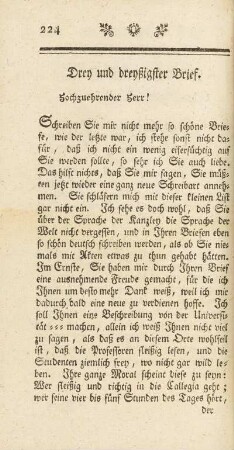 224
Drey und dreyßigster Brief.
Hochzuehrender Herr!
Schreiben Sie mir nicht mehr so schöne Brie-
fe, wie der letzte war, ich stehe sonst nicht da-
für, daß ich nicht ein wenig eifersüchtig auf
Sie werden sollte, so sehr ich Sie auch liebe.
Das hilft nichts, daß Sie mir sagen, Sie müß-
sen jetzt wieder eine ganz neue Schreibart anneh-
men. Sie schläfern mich mit dieser kleinen List
gar nicht ein. Ich sehe es doch wohl, daß Sie
über der Sprache der Kanzley die Sprache der
Welt nicht vergessen, und in Ihren Briefen eben
so schön deutsch schreiben werden, als ob Sie nie-
mals mit Akten etwas zu thun gehabt hätten.
Im Ernste, Sie haben mir durch Ihren Brief
eine ausnehmende Freude gemacht, für die ich
Ihnen um desto mehr Dank weiß, weil ich mir
dadurch bald eine neue zu verdienen hoffe. Ich
soll Ihnen eine Beschreibung von der Universi-
tät --- machen, allein ich weiß Ihnen nicht viel
zu sagen, als daß es an diesem Orte wohlfeil
ist, daß die Professoren fleißig lesen, und die
Studenten ziemlich frey, wo nicht gar wild le-
ben. Ihre ganze Moral scheint diese zu seyn:
Wer fleißig und richtig in die Collegia geht;
wer seine vier bis fünf Stunden des Tages hört,
der